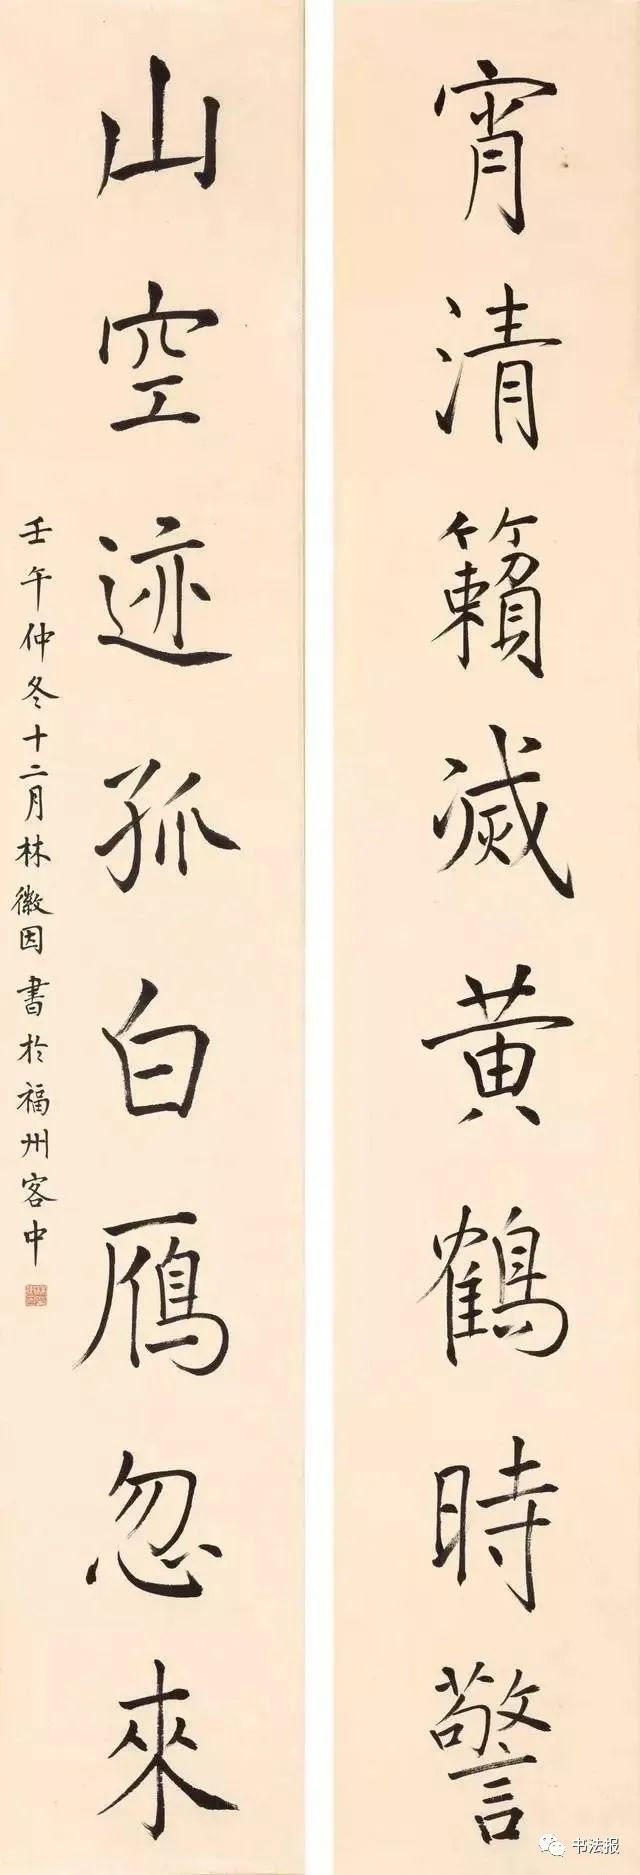 宵清籟滅黄鶴時警
山空迹孤白鴈忽來
壬午仲冬十二月林徽因書於福州客中
书法报